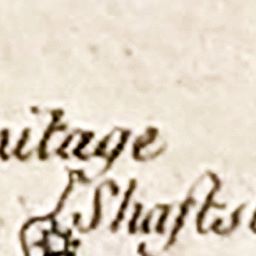 uitage
Shafts